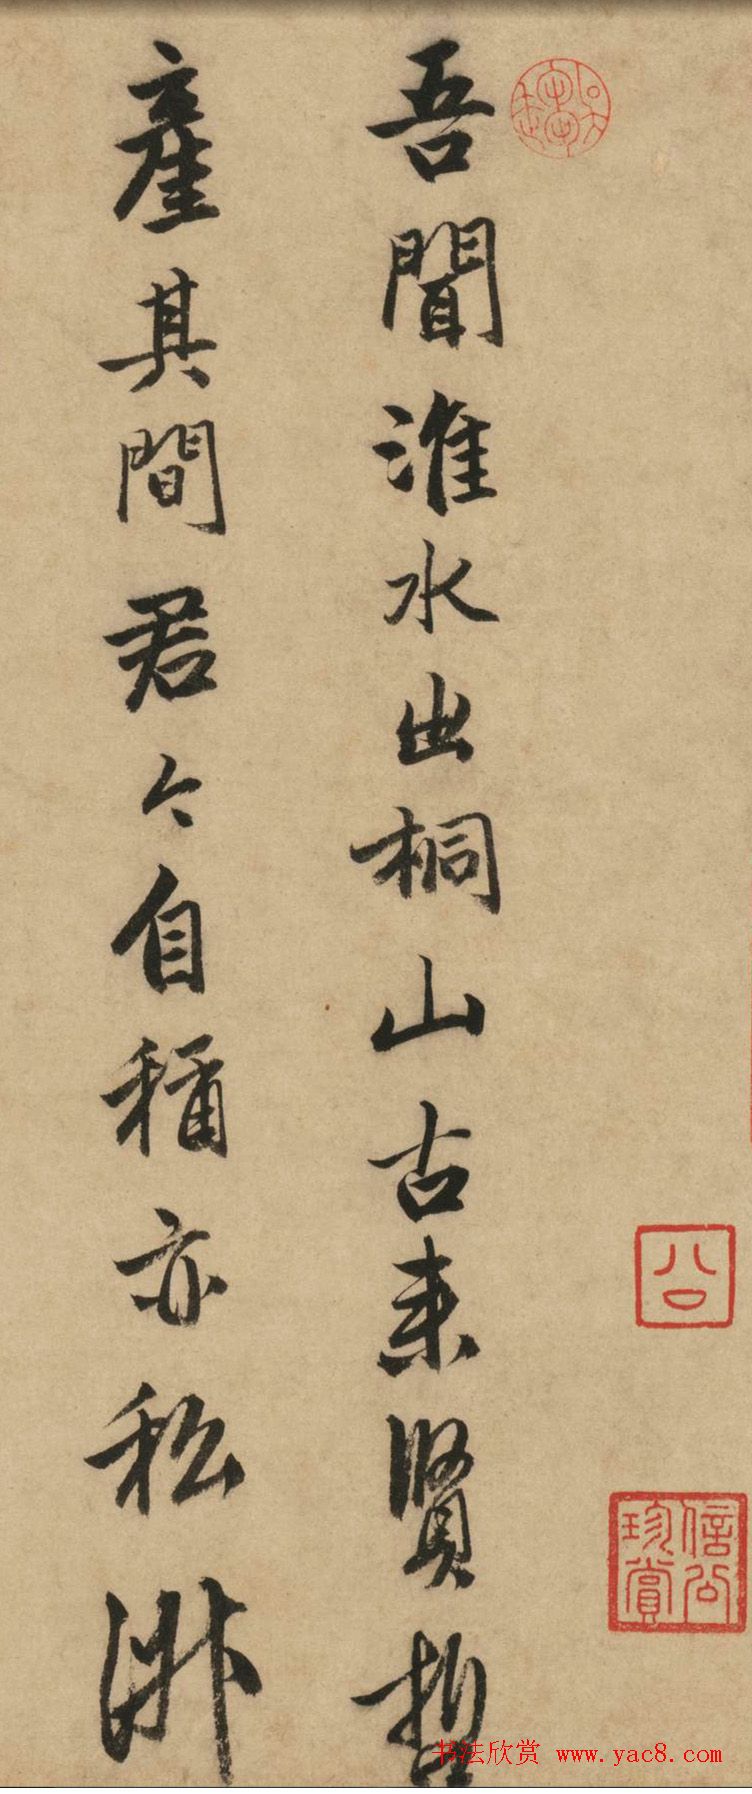 吾聞淮水出桐山古来賢哲
產其間君今自稱亦私淑
公
信公珍賞
书法欣赏 www.yac8.com